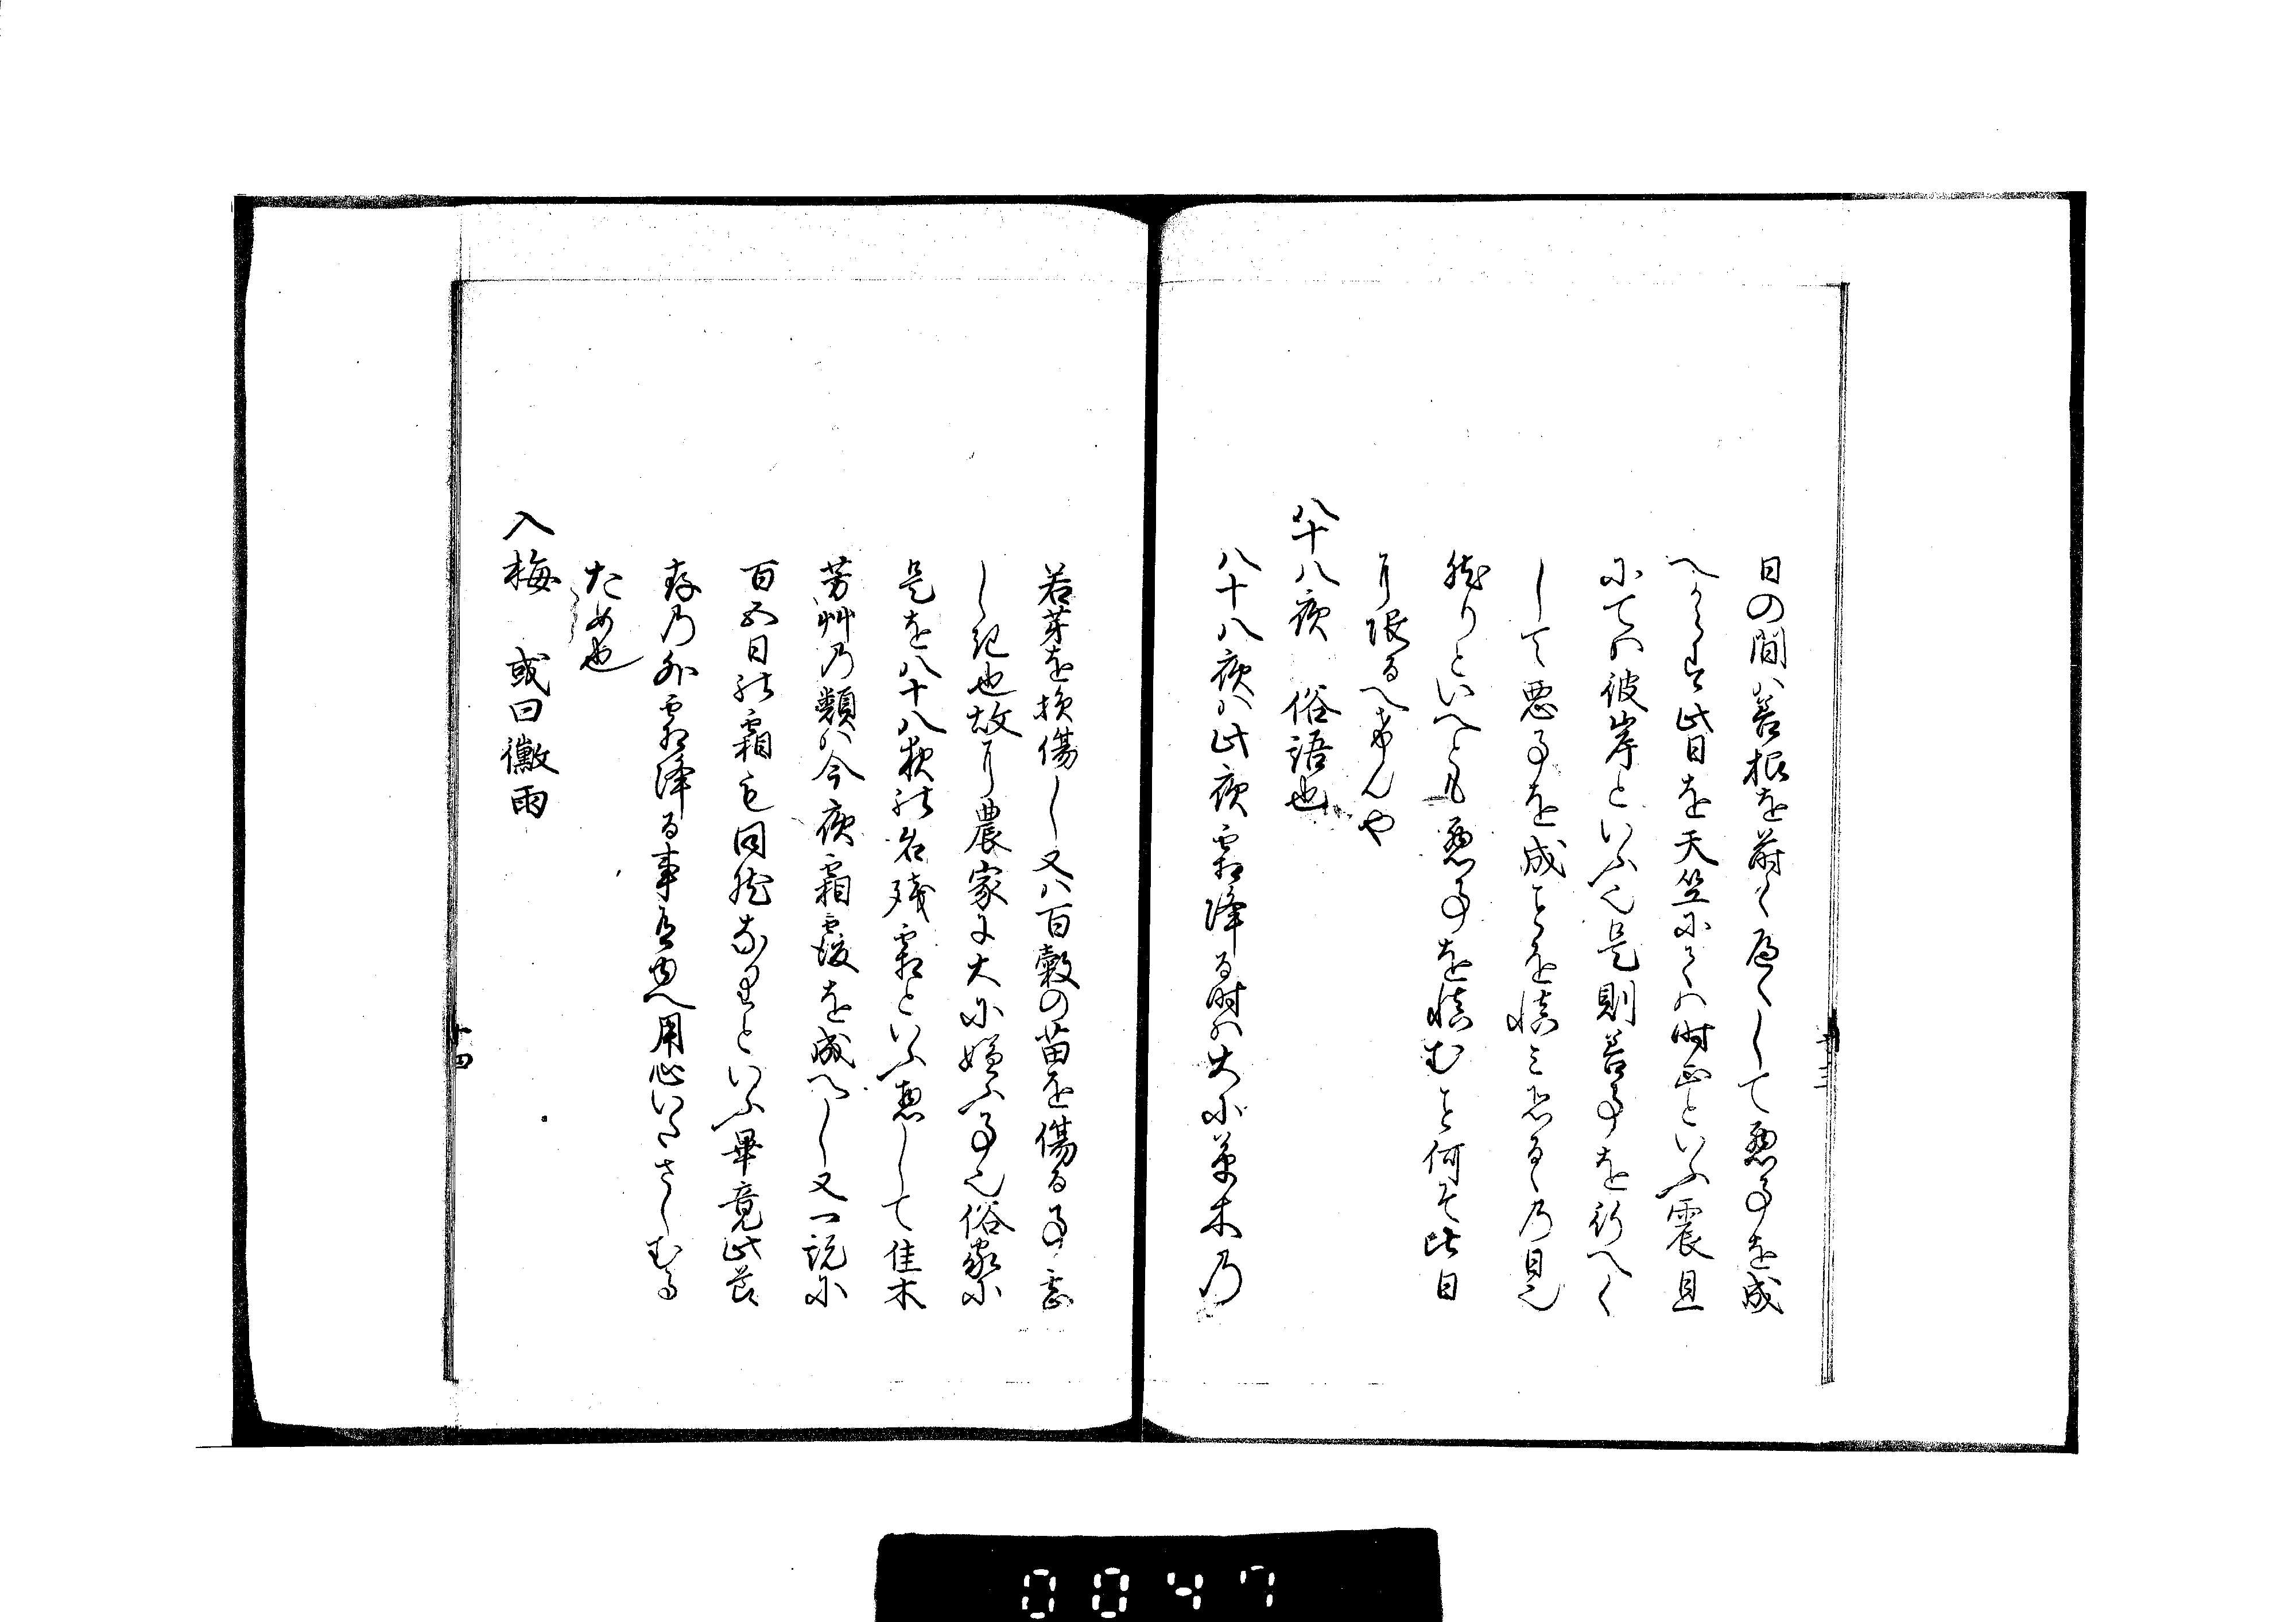 日の間ハ善根を蒔くへくして悪事を成
へからす此日を天竺にてハ時正といふ震旦
にてハ彼岸といふ也是則善事を行へく
して悪事を成ことを慎ミ恐るゝ乃日也
然りといへとも悪事を慎むこと何そ此日
に限るへけんや
八十八夜 俗語也
八十八夜ハ此夜霜降る時ハ大に草木乃
若芽を損傷し又ハ百穀の苗を傷る事甚
しき也故に農家に大に嫌ふ事也俗家に
是を八十八夜の名残霜といふ惣して佳木
芳艸乃類ハ今夜霜覆を成へし又一説に
百五日の霜も同然なりといふ畢竟此節
存乃外霜降る事有ゆへ用心いたさしむる
ため也
入梅 或曰黴雨
十三
十四
0047